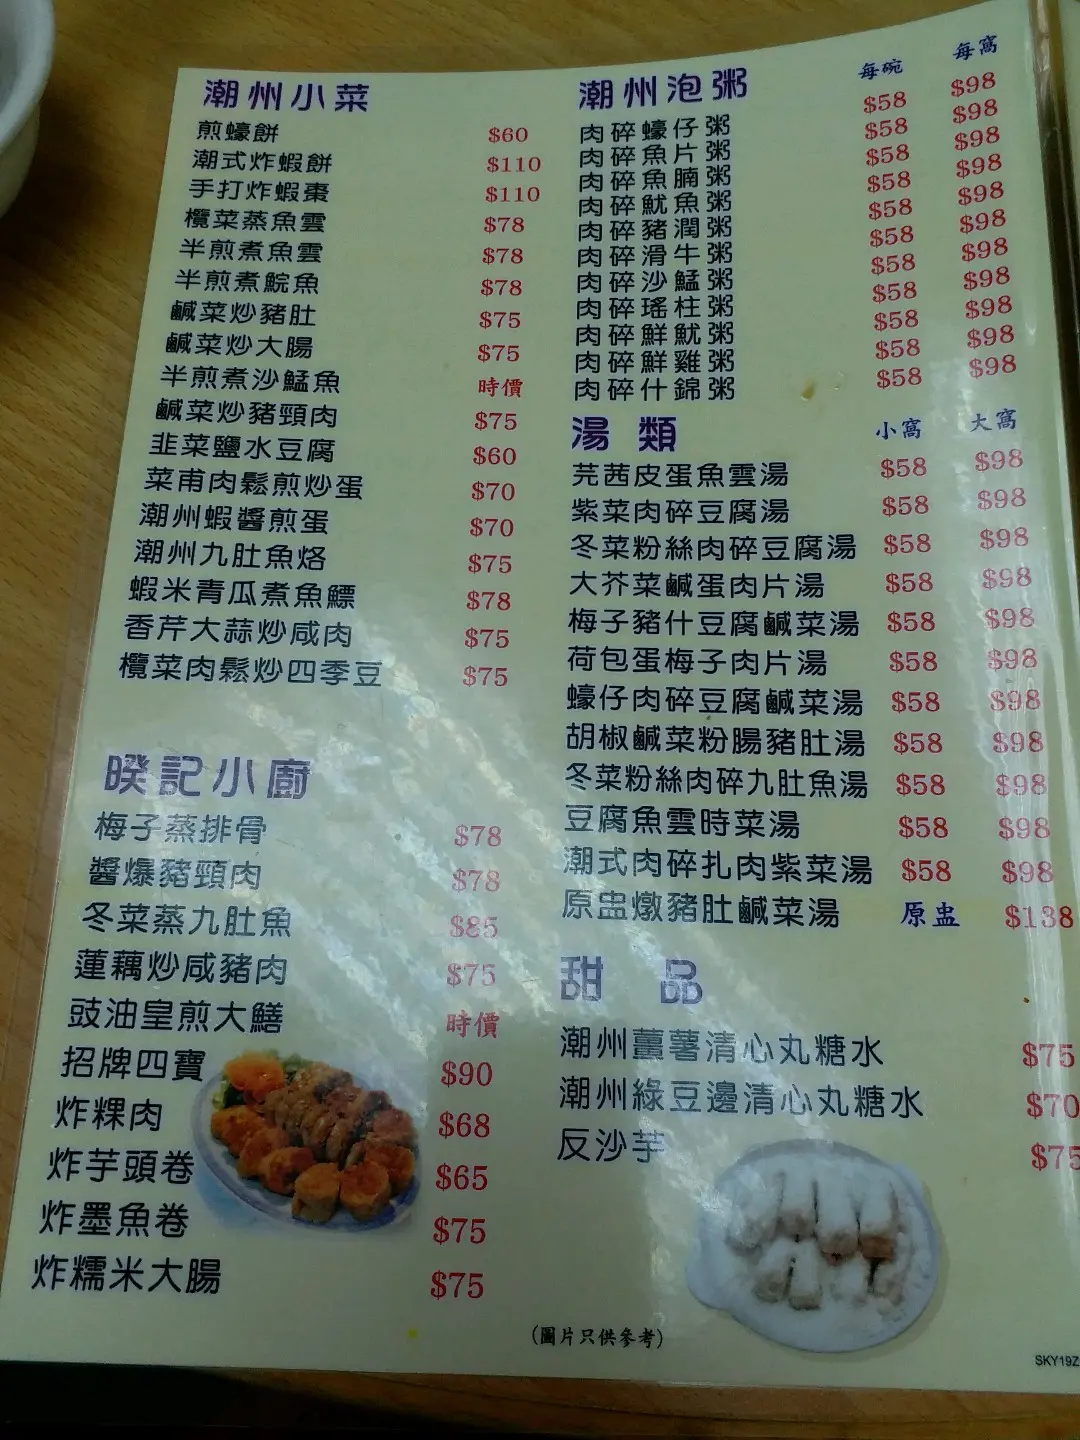 潮州小菜
煎蠔餅 $60
潮式炸蝦餅 $110
手打炸蝦棗 $110
欖菜蒸魚雲 $78
半煎煮魚雲 $78
半煎煮鯇魚 $78
鹹菜炒豬肚 $75
鹹菜炒大腸 $75
半煎煮沙鯭魚 時價
鹹菜炒豬頸肉 $75
韭菜鹽水豆腐 $60
菜甫肉鬆煎炒蛋 $70
潮州蝦醬煎蛋 $70
潮州九肚魚烙 $75
蝦米青瓜煮魚鰾 $78
香芹大蒜炒咸肉 $75
欖菜肉鬆炒四季豆 $75
睽記小廚
梅子蒸排骨 $78
醬爆豬頸肉 $78
冬菜蒸九肚魚 $85
蓮藕炒咸豬肉 $75
豉油皇煎大鱔 時價
招牌四寶 $90
炸粿肉 $68
炸芋頭卷 $65
炸墨魚卷 $75
炸糯米大腸 $75
潮州泡粥 每碗 每窩
肉碎蠔仔粥 $58 $98
肉碎魚片粥 $58 $98
肉碎魚腩粥 $58 $98
肉碎魷魚粥 $58 $98
肉碎豬潤粥 $58 $98
肉碎滑牛粥 $58 $98
肉碎沙鯭粥 $58 $98
肉碎瑤柱粥 $58 $98
肉碎鮮魷粥 $58 $98
肉碎鮮雞粥 $58 $98
肉碎什錦粥 $58 $98
湯類 小窩 大窩
芫茜皮蛋魚雲湯 $58 $98
紫菜肉碎豆腐湯 $58 $98
冬菜粉絲肉碎豆腐湯 $58 $98
大芥菜鹹蛋肉片湯 $58 $98
梅子豬什豆腐鹹菜湯 $58 $98
荷包蛋梅子肉片湯 $58 $98
蠔仔肉碎豆腐鹹菜湯 $58 $98
胡椒鹹菜粉腸豬肚湯 $58 $98
冬菜粉絲肉碎九肚魚湯 $58 $98
豆腐魚雲時菜湯 $58 $98
潮式肉碎扎肉紫菜湯 $58 $98
原盅燉豬肚鹹菜湯 原盅 $138
甜品
潮州薑薯清心丸糖水 $75
潮州綠豆邊清心丸糖水 $70
反沙芋 $75
(圖片只供參考)
SKY19Z